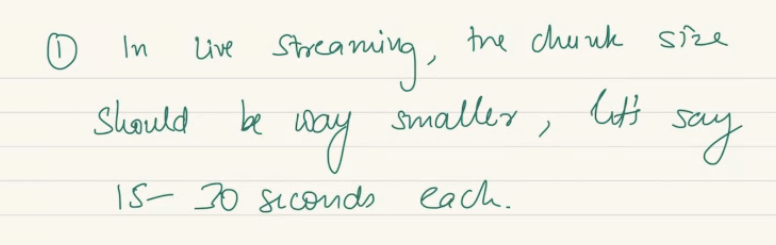 ① In Live streaming, the chunk size
should be way smaller, let's say
15- 30 seconds each.